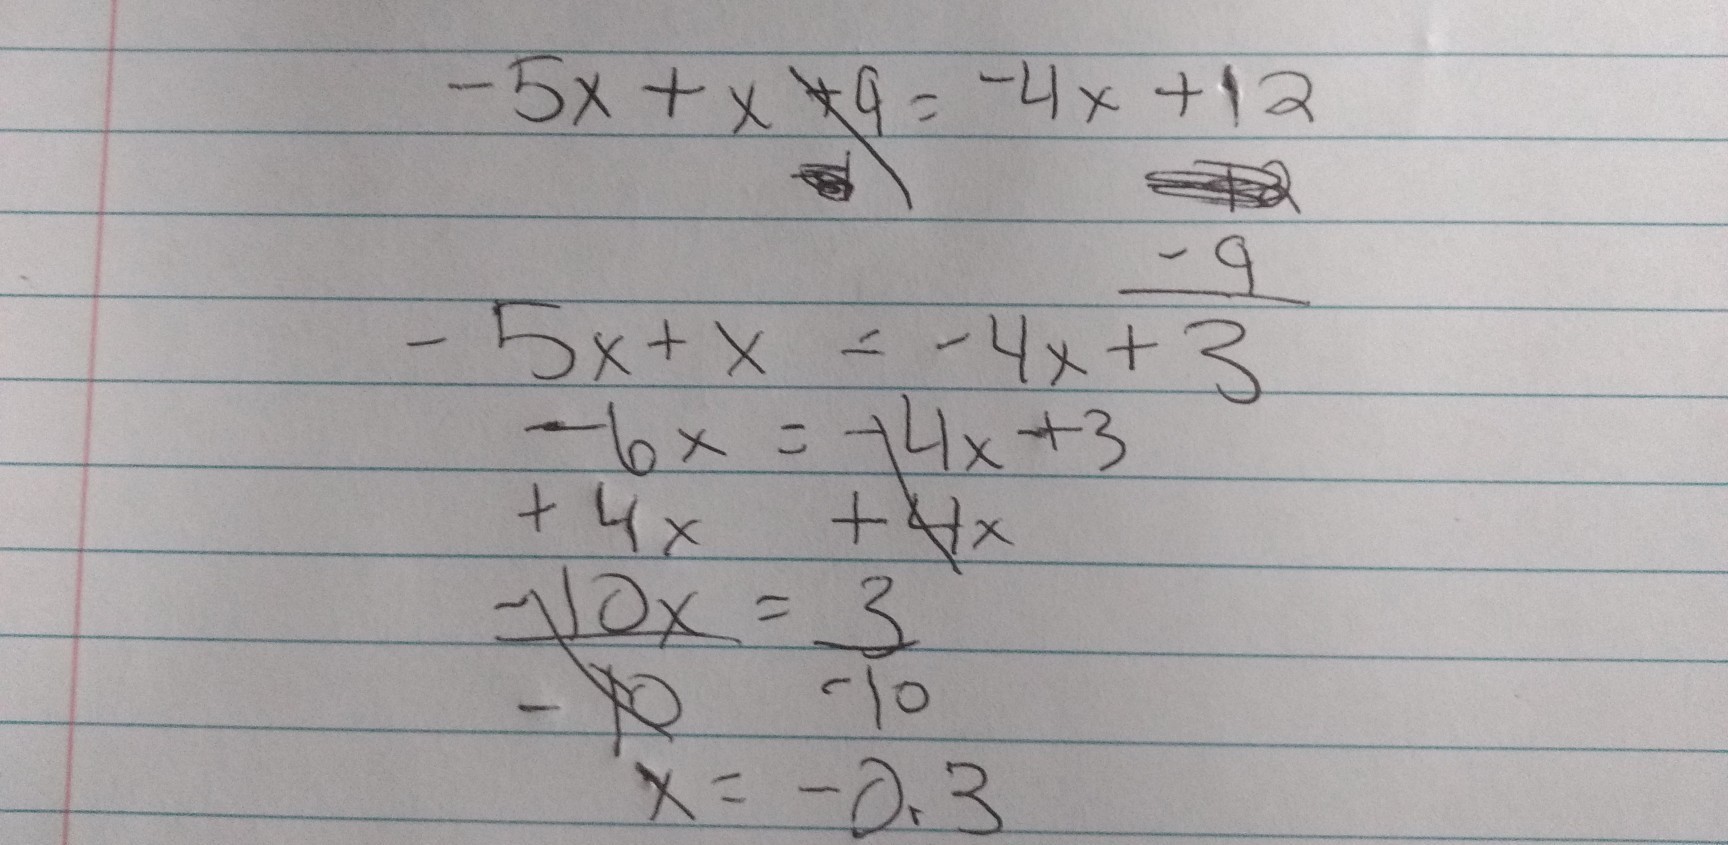 -5x + x +9 = -4x +12
-9
-5x + x = -4x + 3
-6x = -4x +3
+ 4x + 4x
-10x = 3
-10 -10
x = -0.3